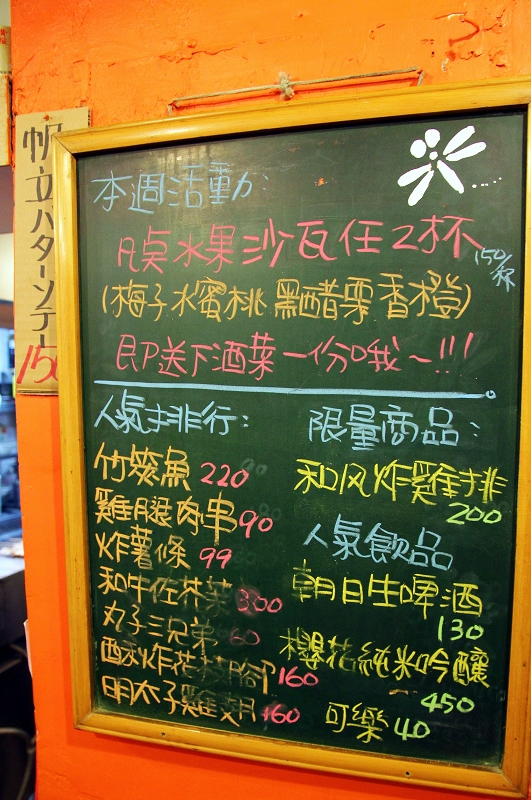 帆立バターソテー
150
本週活動:
凡桌水果沙瓦任2杯
150/杯
(梅子 水蜜桃 黑醋栗 香橙)
即送下酒菜一份哦~!!!
人氣排行:
竹筴魚 220
雞腿肉串 90
炸薯條 99
和牛佐芥茉 300
丸子三兄弟 60
酥炸花枝腳 160
明太子雞翅 160
限量商品:
和风炸雞排
200
人氣飲品
朝日生啤酒
130
櫻花純米吟釀
450
可樂 40